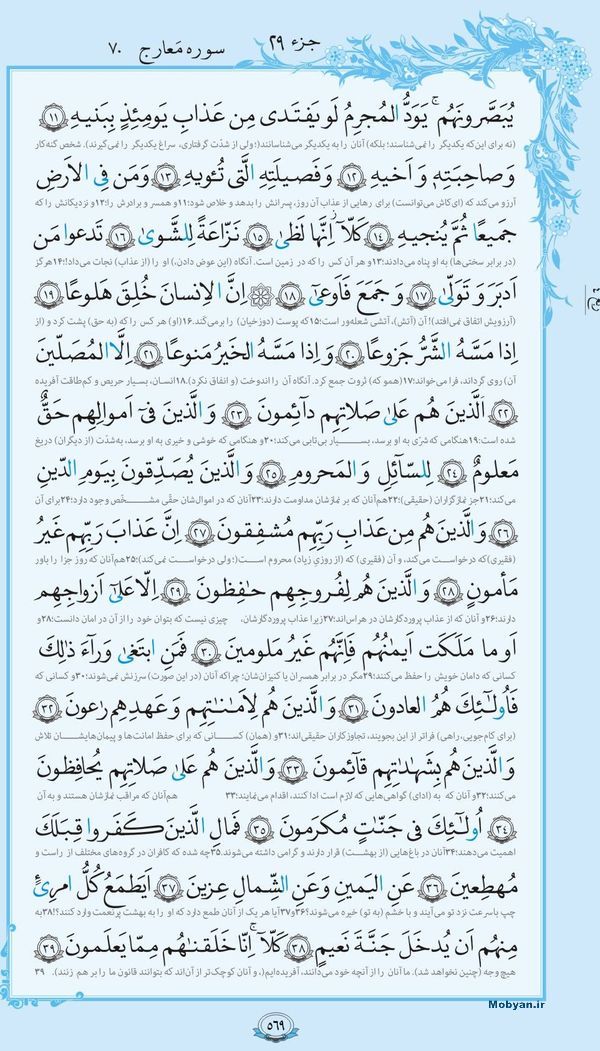 جزء ۲۹
سوره معارج ۷۰
یُبَصَّرونَهُم ۚ یَوَدُّ المُجرِمُ لَو یَفتَدی مِن عَذابِ یَومِئِذٍ بِبَنیهِ ﴿۱۱﴾
(نه برای این‌که یکدیگر را نمی‌شناسند؛ بلکه) آنان را به یکدیگر می‌شناسانند(؛ولی از شدّت گرفتاری، سراغ یکدیگر را نمی‌گیرند). شخص گنه‌کار
وَ صاحِبَتِهٖ وَ اَخیهِ ﴿۱۲﴾ وَ فَصیلَتِهِ الَّتی تُـٔویهِ ﴿۱۳﴾ وَ مَن فِی الاَرضِ
آرزو می‌کند که (ای‌کاش می‌توانست) برای رهایی از عذاب آن روز، پسرانش را بدهد و خلاص شود؛۱۱و همسر و برادرش را؛۱۲و نزدیکانش را که
جَمیعًا ثُمَّ یُنجیهِ ﴿۱۴﴾ کَلّا ۖ اِنَّها لَظیٰ ﴿۱۵﴾ نَزّاعَةً لِلشَّویٰ ﴿۱۶﴾ تَدعوا مَن
(در برابر سختی‌ها) به او پناه می‌دادند؛۱۳و هر آن کس را که در زمین است. آنگاه (این عوض دادن،) او را (از عذاب) نجات می‌داد!؛۱۴هرگز
اَدبَرَ وَ تَوَلّیٰ ﴿۱۷﴾ وَ جَمَعَ فَاَوعیٰ ﴿۱۸﴾ اِنَّ الاِنسانَ خُلِقَ هَلوعًا ﴿۱۹﴾
(آرزویش اتفاق نمی‌افتد)! آن (آتش)، آتشی شعله‌ور است؛۱۵که پوست (دوزخیان) را برمی‌کند.۱۶(او) هر کس را که (به حق) پشت کرد و (از
اِذا مَسَّهُ الشَّرُّ جَزوعًا ﴿۲۰﴾ وَ اِذا مَسَّهُ الخَیرُ مَنوعًا ﴿۲۱﴾ اِلَّا المُصَلّینَ
آن) روی گرداند، فرا می‌خواند؛۱۷(همو که) ثروت جمع کرد. آنگاه آن را اندوخت (و انفاق نکرد).۱۸انسان، بسیار حریص و کم‌طاقت آفریده
﴿۲۲﴾ اَلَّذینَ هُم عَلیٰ صَلاتِهِم دائِمونَ ﴿۲۳﴾ وَ الَّذینَ فی اَموالِهِم حَقٌّ
شده است؛۱۹هنگامی که شرّی به او برسد، بسیار بی‌تابی می‌کند؛۲۰و هنگامی که خوشی و خیری به او برسد، به‌شدّت (از دیگران) دریغ
مَعلومٌ ﴿۲۴﴾ لِلسّائِلِ وَ المَحرومِ ﴿۲۵﴾ وَ الَّذینَ یُصَدِّقونَ بِیَومِ الدّینِ
می‌کند؛۲۱جز نمازگزاران (حقیقی)؛۲۲هم‌آنان که بر نمازشان مداومت دارند؛۲۳آنان که در اموال‌شان حقّی مشخّص وجود دارد؛۲۴برای آن
﴿۲۶﴾ وَ الَّذینَ هُم مِن عَذابِ رَبِّهِم مُشفِقونَ ﴿۲۷﴾ اِنَّ عَذابَ رَبِّهِم غَیرُ
(فقیری) که درخواست می‌کند، و آن (فقیری) که (از روزیِ زیاد) محروم است(؛ولی درخواست نمی‌کند)؛۲۵هم‌آنان که روز جزا را باور
مَأمونٍ ﴿۲۸﴾ وَ الَّذینَ هُم لِفُروجِهِم حٰفِظونَ ﴿۲۹﴾ اِلّا عَلیٰ اَزواجِهِم
دارند؛۲۶و آنان که از عذاب پروردگارشان در هراس‌اند؛۲۷زیرا عذاب پروردگارشان، چیزی نیست که بتوان خود را از آن در امان دانست؛۲۸و
اَو ما مَلَکَت اَیمٰنُهُم فَاِنَّهُم غَیرُ مَلومینَ ﴿۳۰﴾ فَمَنِ ابتَغیٰ وَراءَ ذٰلِکَ
کسانی که دامان خویش را حفظ می‌کنند؛۲۹مگر در برابر همسران یا کنیزان‌شان؛ چراکه آنان (در این صورت) سرزنش نمی‌شوند؛۳۰و کسانی که
فَاُولٰئِکَ هُمُ العادونَ ﴿۳۱﴾ وَ الَّذینَ هُم لِاَمٰنٰتِهِم وَ عَهدِهِم رٰعونَ ﴿۳۲﴾
(برای کام‌جویی، راهی) فراتر از این بجویند، تجاوزکاران حقیقی‌اند؛۳۱و (همان) کسانی که برای حفظ امانت‌ها و پیمان‌هایشان تلاش
وَ الَّذینَ هُم بِشَهٰدٰتِهِم قائِمونَ ﴿۳۳﴾ وَ الَّذینَ هُم عَلیٰ صَلاتِهِم یُحافِظونَ
می‌کنند؛۳۲و آنان که به (ادای) گواهی‌هایی که لازم است ادا کنند، اقدام می‌نمایند؛۳۳ هم‌آنان که مراقب نمازشان هستند و به آن
﴿۳۴﴾ اُولٰئِکَ فی جَنّٰتٍ مُکرَمونَ ﴿۳۵﴾ فَمالِ الَّذینَ کَفَروا قِبَلَکَ
اهمیت می‌دهند؛۳۴آنان در باغ‌هایی (از بهشت) قرار دارند و گرامی داشته می‌شوند.۳۵چه شده که کافران در گروه‌های مختلف از راست و
مُهطِعینَ ﴿۳۶﴾ عَنِ الیَمینِ وَ عَنِ الشِّمالِ عِزینَ ﴿۳۷﴾ اَیَطمَعُ کُلُّ امرِئٍ
چپ باسرعت نزد تو می‌آیند و با خشم (به تو) خیره می‌شوند؟!۳۶و۳۷آیا هر یک از آنان طمع دارد که او را به بهشت پرنعمت وارد کنند؟!۳۸به
مِنهُم اَن یُدخَلَ جَنَّةَ نَعیمٍ ﴿۳۸﴾ کَلّا ۖ اِنّا خَلَقنٰهُم مِمّا یَعلَمونَ ﴿۳۹﴾
هیچ وجه (چنین نخواهد شد). ما آنان را از آنچه خود می‌دانند، آفریده‌ایم(، و آنان کوچک‌تر از آن‌اند که بتوانند قانون ما را بر هم زنند). ۳۹
Mobyan.ir
۵۶۹